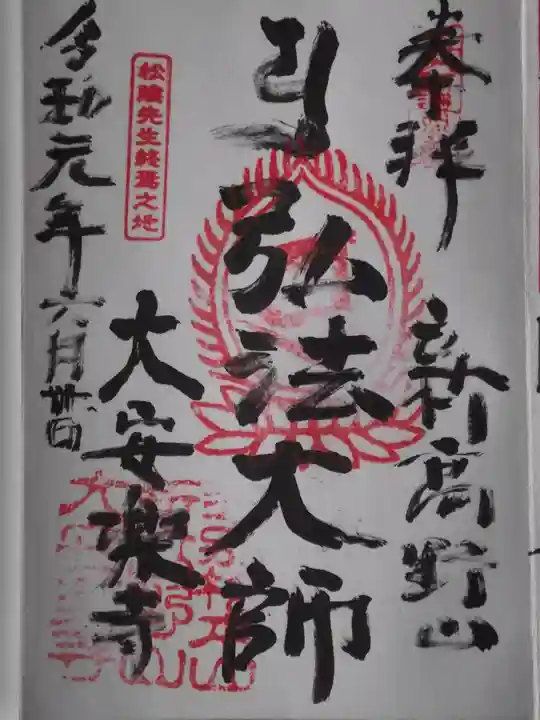 奉拝
新高野山
弘法大師
大安楽寺
松陰先生終焉之地
令和元年六月廿日